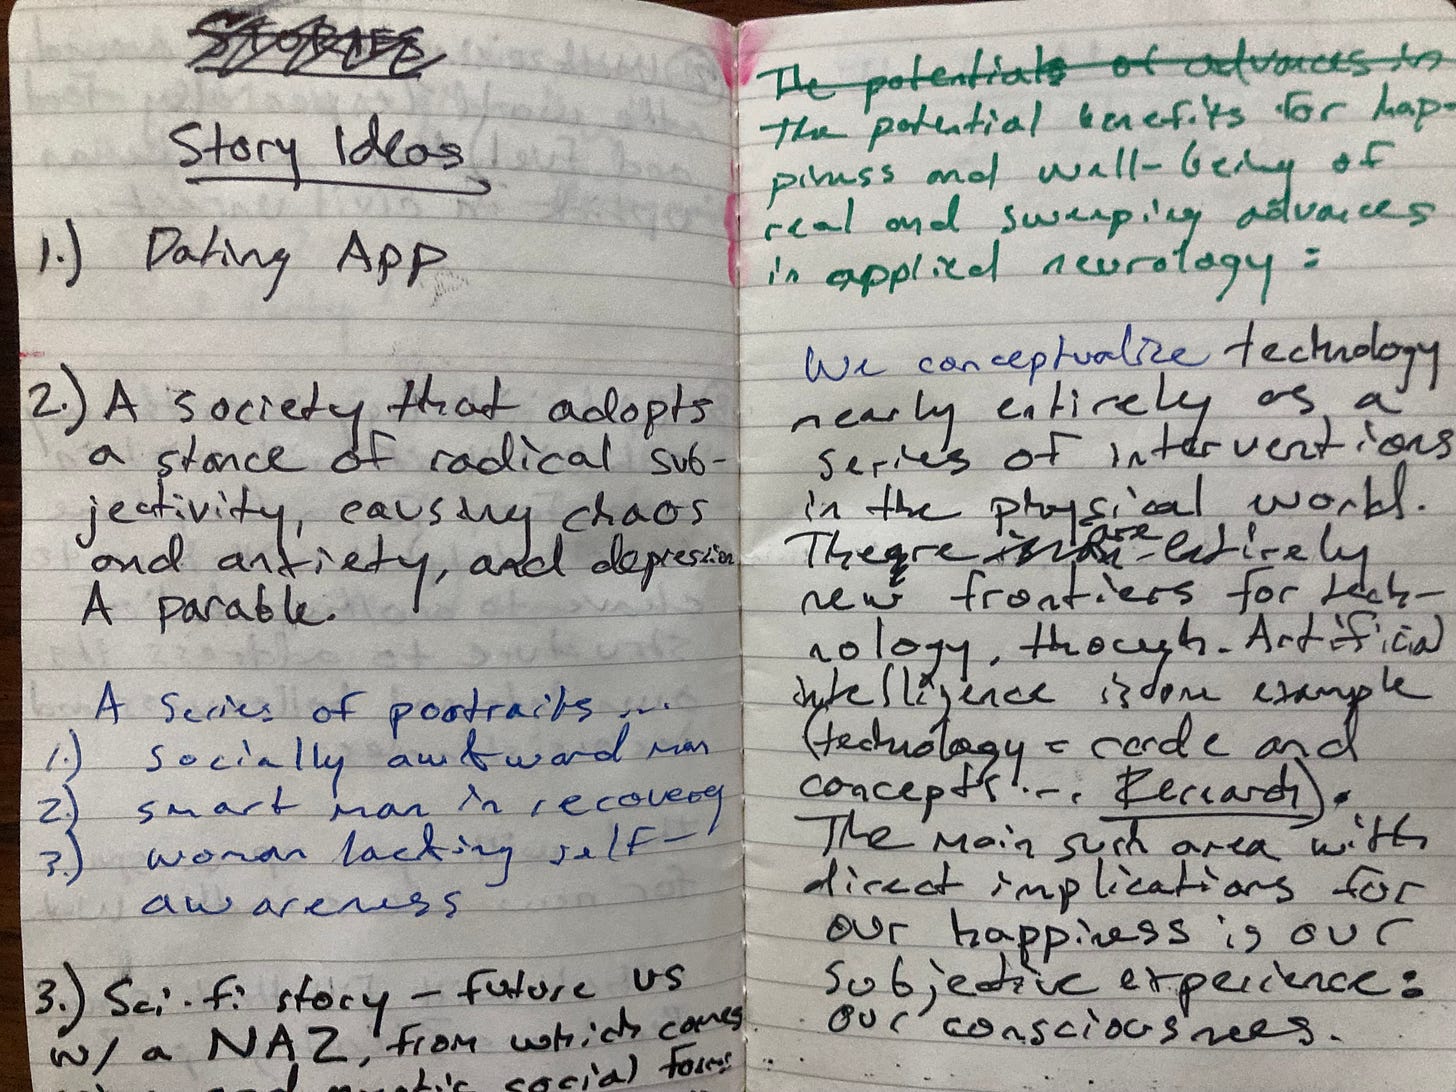 STORIES
Story Ideas
1.) Dating App
2.) A society that adopts
a stance of radical sub-
jectivity, causing chaos
and anxiety, and depression
A parable.
A series of portraits ...
1.) socially awkward man
2.) smart man in recovery
3.) woman lacking self-
awareness
3.) Sci-fi story - future US
w/ a NAZ, from which comes
and social forms
The potentials of advances in
the potential benefits for hap-
piness and well-being of
real and sweeping advances
in applied neurology:
We conceptualize technology
nearly entirely as a
series of interventions
in the physical world.
There are entirely
new frontiers for tech-
nology, though. Artificial
intelligence is one example
(technology = code and
concepts... Research).
The main such area with
direct implications for
our happiness is our
subjective experience:
our consciousness.